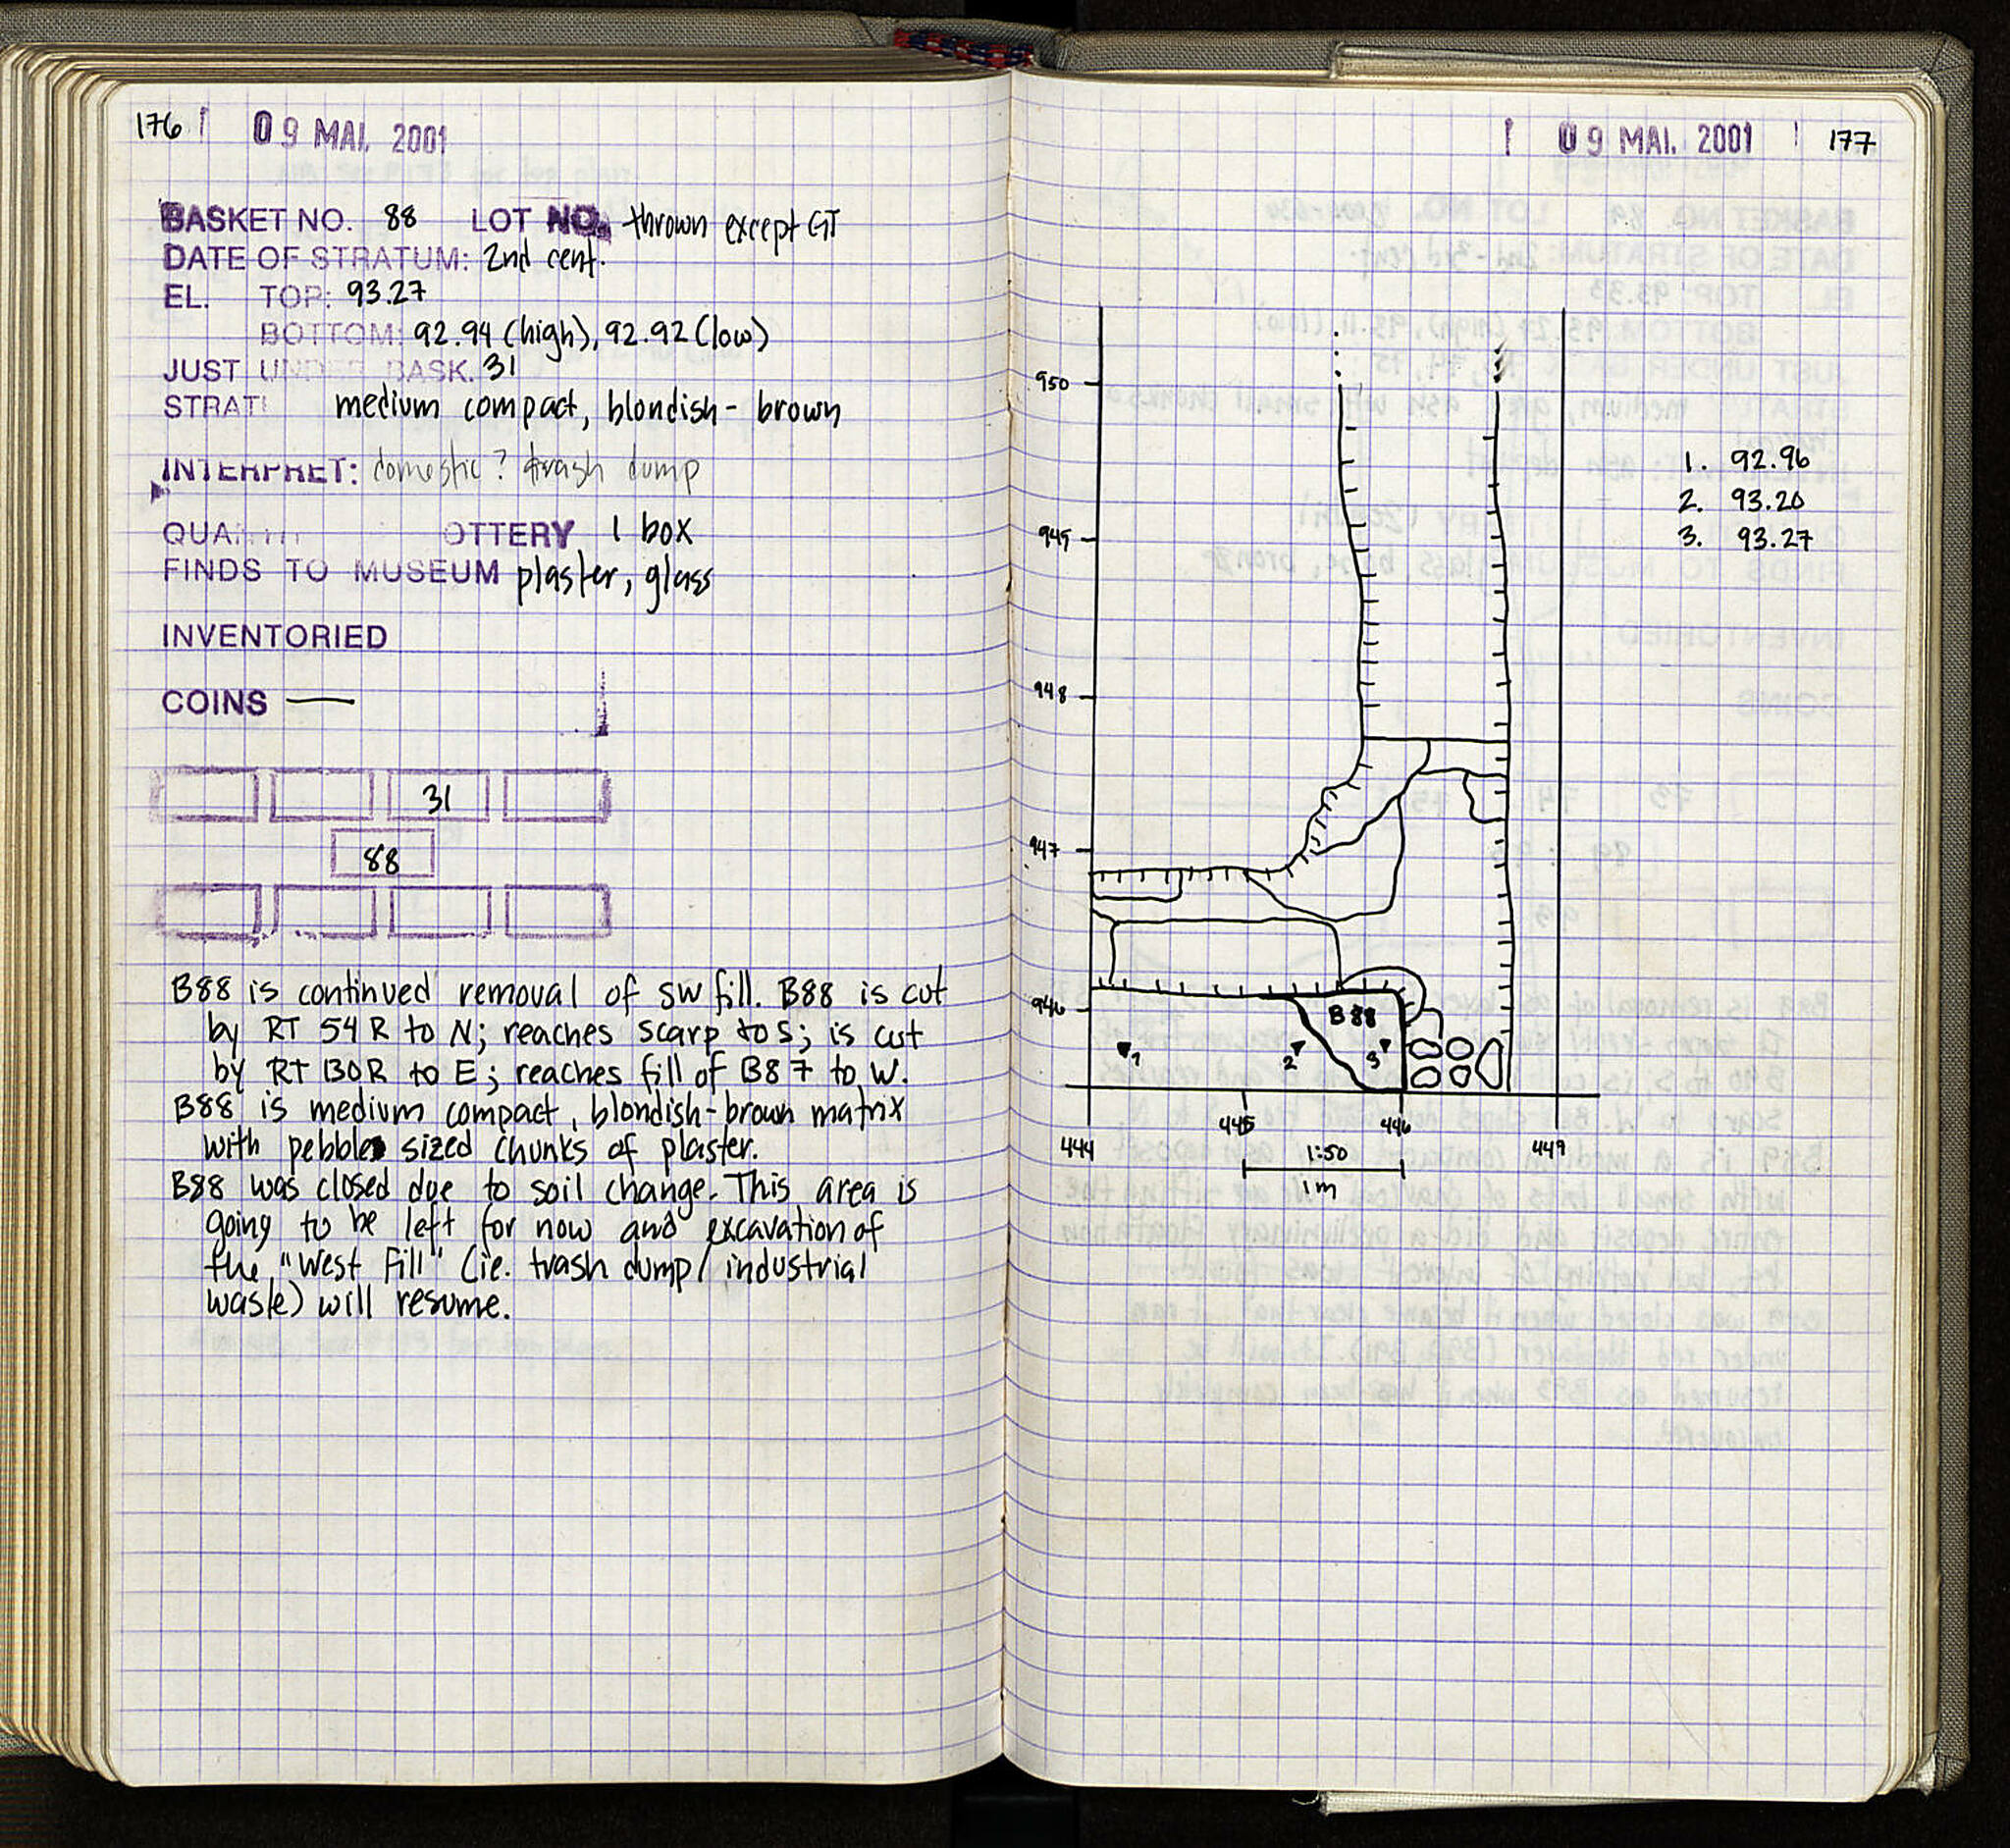 176 09 MAI. 2001
BASKET NO. 88 LOT NO. thrown except GT
DATE OF STRATUM: 2nd cent.
EL. TOP: 93.27
BOTTOM: 92.94 (high), 92.92 (low)
JUST UNDER BASK. 31
STRAT medium compact, blondish-brown
INTERPRET: domestic? trash dump
QUA OTTERY 1 box
FINDS TO MUSEUM plaster, glass
INVENTORIED
COINS —
31
88
B88 is continued removal of SW fill. B88 is cut
by RT 54 R to N; reaches scarp to S; is cut
by RT 130R to E; reaches fill of B87 to W.
B88 is medium compact, blondish-brown matrix
with pebble sized chunks of plaster.
B88 was closed due to soil change. This area is
going to be left for now and excavation of
the "West Fill" (ie. trash dump/industrial
waste) will resume.
09 MAI. 2001 177
950
949
948
947
946
1. 92.96
2. 93.20
3. 93.27
B88
1
2
3
444
445
446
449
1:50
1m